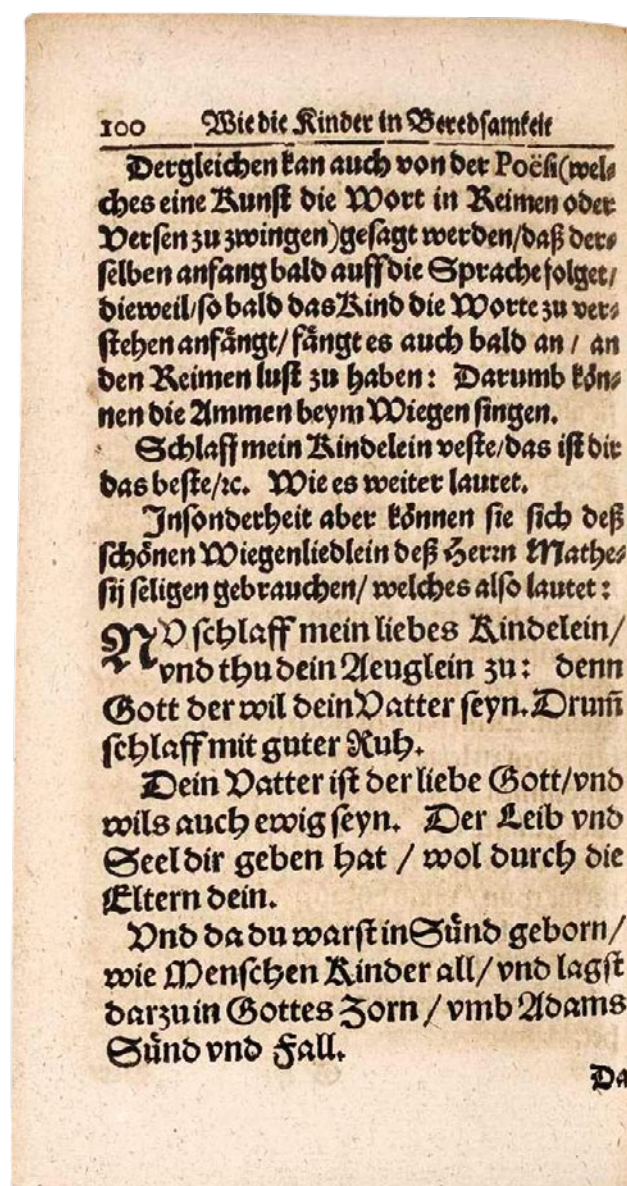 100 Wie die Kinder in Beredsamkeit
Dergleichen kan auch von der Poësi (wel⸗
ches eine Kunst die Wort in Reimen oder
Versen zu zwingen) gesagt werden / daß der⸗
selben anfang bald auff die Sprache folget /
dieweil / so bald das Kind die Worte zu ver⸗
stehen anfängt / fängt es auch bald an / an
den Reimen lust zu haben: Darumb kön⸗
nen die Ammen beym Wiegen singen.
Schlaff mein Kindelein veste / das ist dir
das beste / ꝛc. Wie es weiter lautet.
Insonderheit aber können sie sich deß
schönen Wiegenliedlein deß Herrn Mathe⸗
sij seligen gebrauchen / welches also lautet:
NV schlaff mein liebes Kindelein /
vnd thu dein Aeuglein zu: denn
Gott der wil dein Vatter seyn. Drum̃
schlaff mit guter Ruh.
Dein Vatter ist der liebe Gott / vnd
wils auch ewig seyn. Der Leib vnd
Seel dir geben hat / wol durch die
Eltern dein.
Vnd da du warst in Sünd geborn /
wie Menschen Kinder all / vnd lagst
darzu in Gottes Zorn / vmb Adams
Sünd vnd Fall.
Da